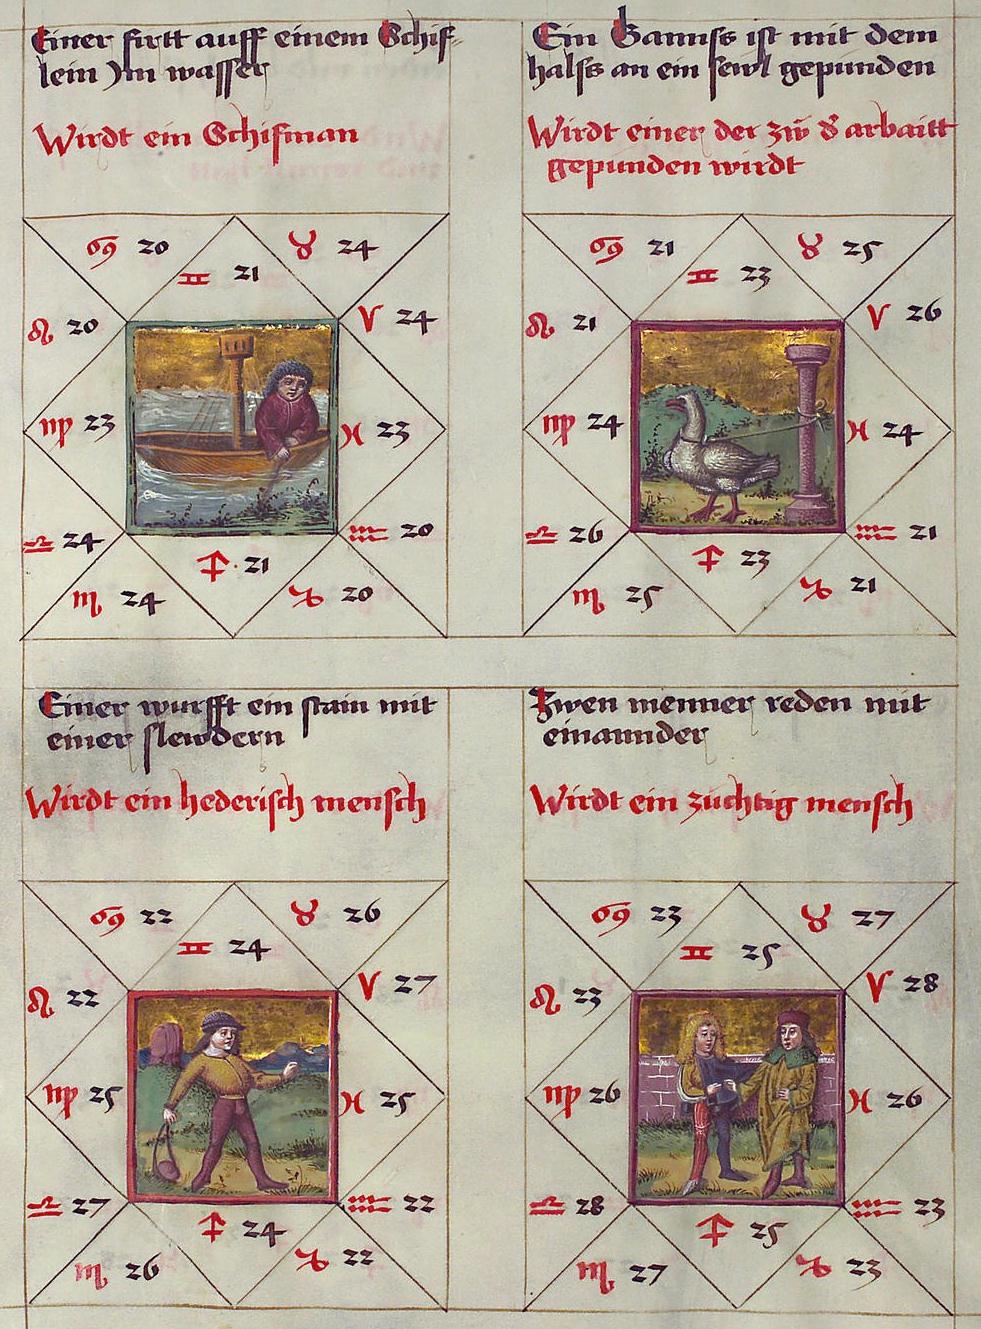 Einer firtt auff einem Schif-
lein Jm wasser
Wirdt ein Schifman
♋ 20
♊ 21
♉ 24
♌ 20
♈ 24
♍ 23
♓ 23
♎ 24
♒ 20
♏ 24
♐ 21
♑ 20
Ein Ganns ist mit dem
halss an ein sewl gepunden
Wirdt einer der zw der arbaitt
gepunden wirdt
♋ 21
♊ 23
♉ 25
♌ 21
♈ 26
♍ 24
♓ 24
♎ 26
♒ 21
♏ 25
♐ 23
♑ 21
Einer wurfft ein stain mit
einer slewdern
Wirdt ein hederisch mensch
♋ 22
♊ 24
♉ 26
♌ 22
♈ 27
♍ 25
♓ 25
♎ 27
♒ 22
♏ 26
♐ 24
♑ 22
Zwen menner reden mit
einannder
Wirdt ein züchtig mensch
♋ 23
♊ 25
♉ 27
♌ 23
♈ 28
♍ 26
♓ 26
♎ 28
♒ 23
♏ 27
♐ 25
♑ 23